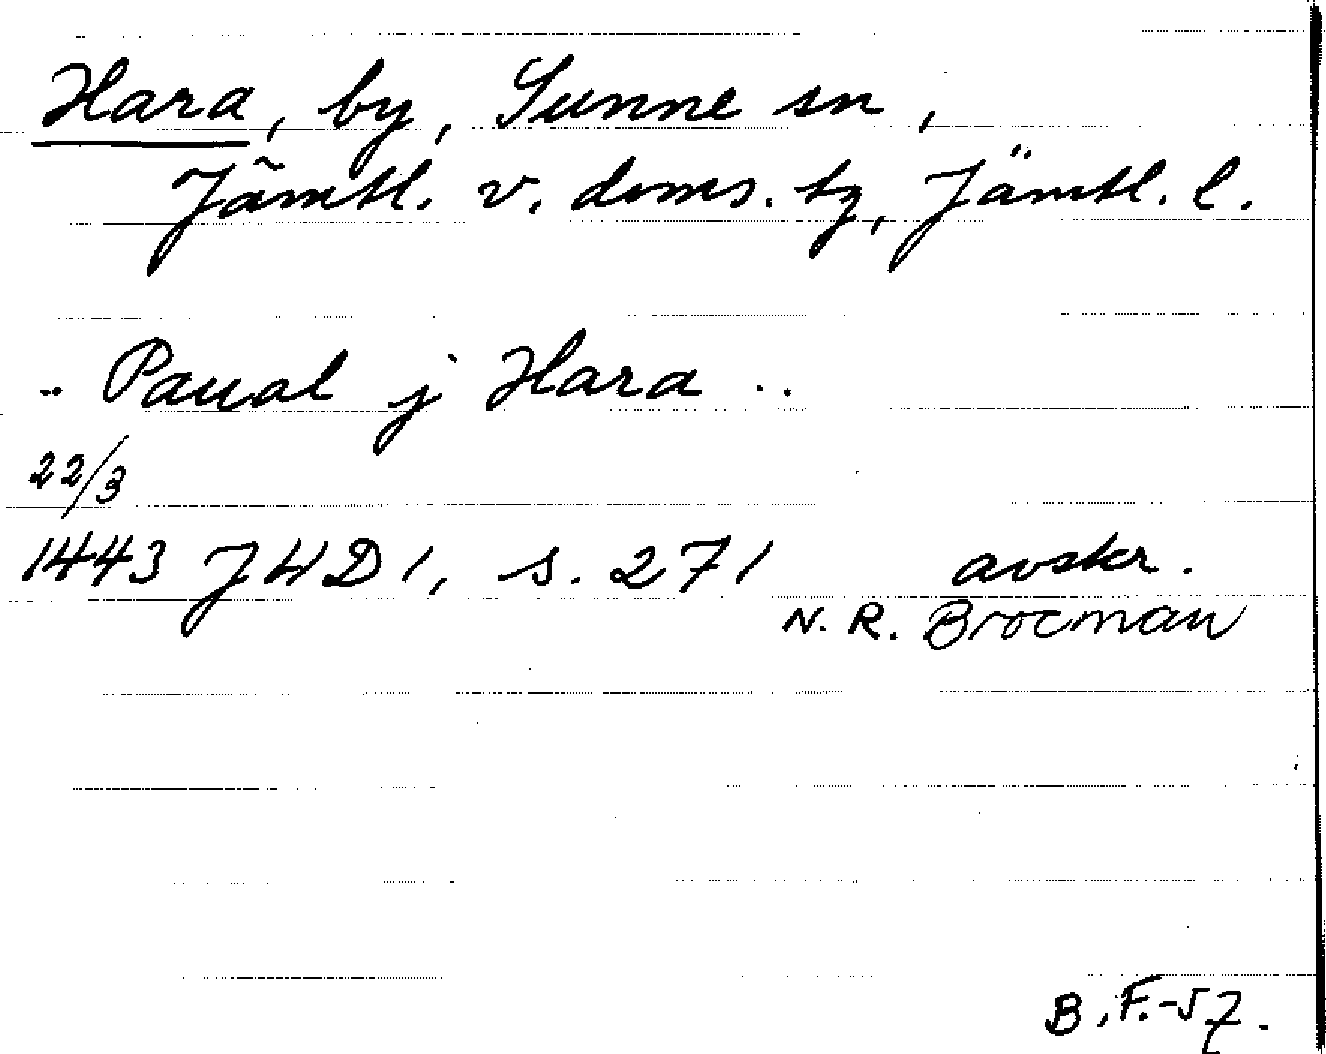 Hara, by, Sunne sn,
Jämtl. v. doms. tg, Jämtl. l.
.. Paual j Hara ..
22/3
1443 JHD 1, s. 271 avskr.
N. R. Brocman
B.F.-57.